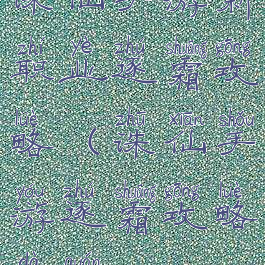 诛仙手游新
zhí yè zhú shuāng gōng
职业逐霜攻
lüè zhū xiān shǒu
略(诛仙手
yóu zhú shuāng gōng lüè
游逐霜攻略